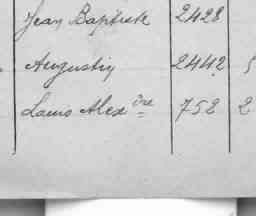 Jean Baptiste 2428
Augustin 2442 5
Louis Alexdre 752 2